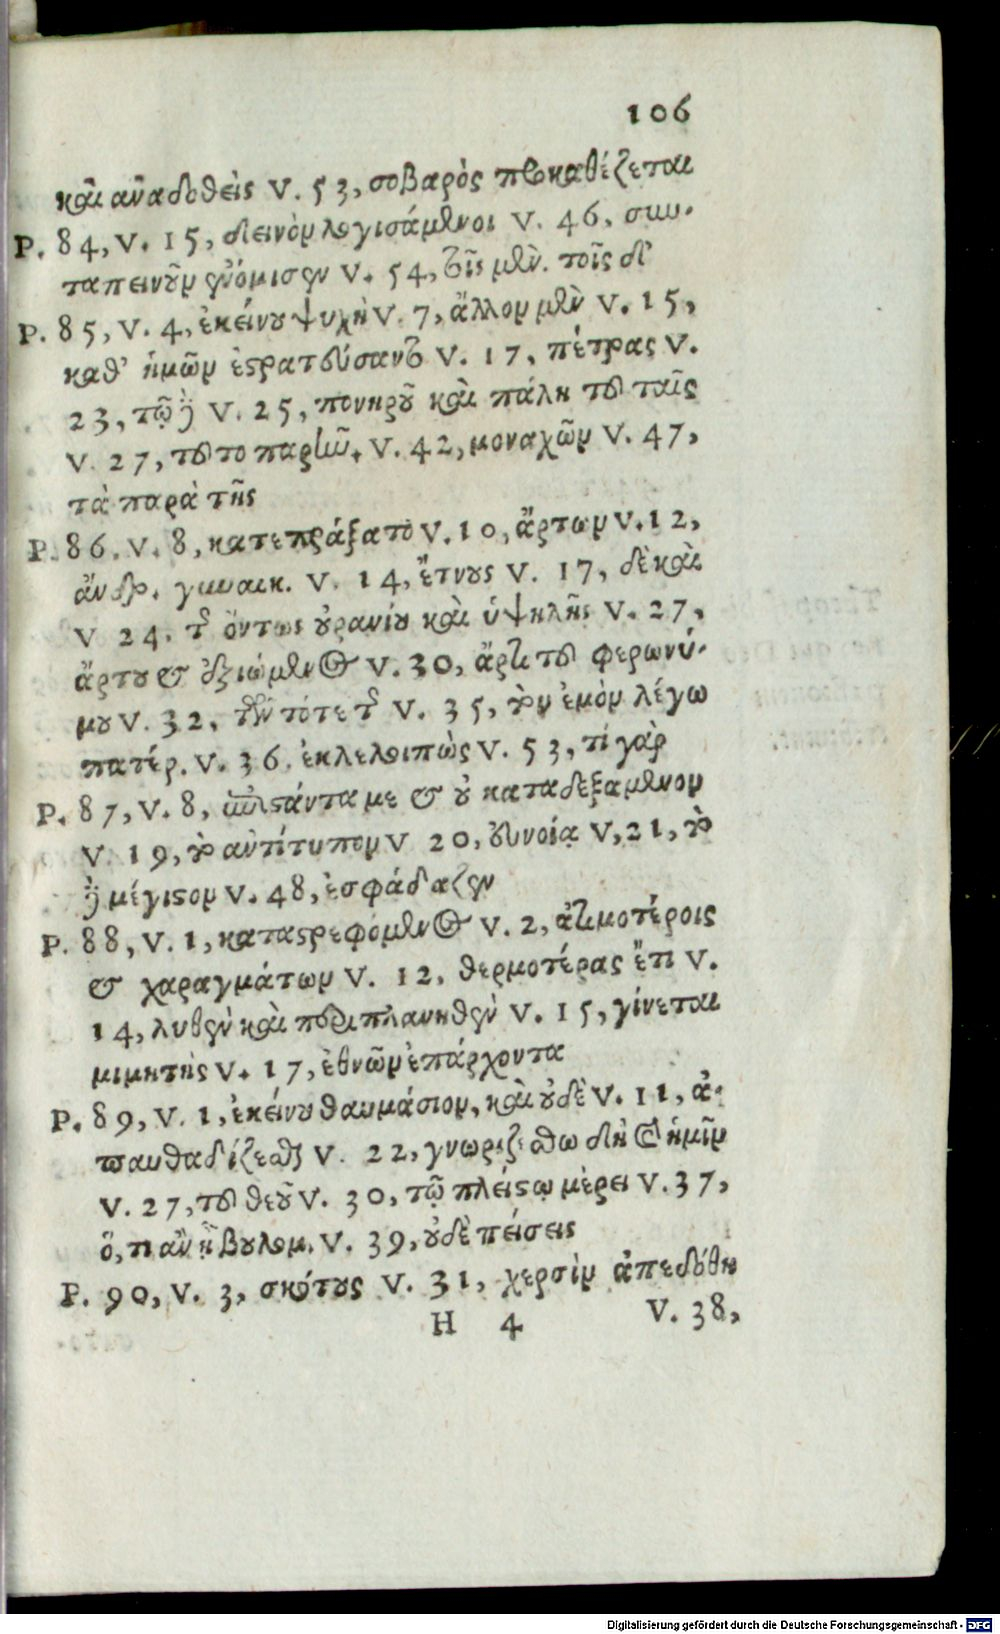 106
κἂν ἀναδοθεὶς V. 53, σοβαρὸς προκαθέζεται
P. 84, V. 15, δεινὸν λογισάμενοι V. 46, συν-
ταπεινοῦν ἐνόμισεν V. 54, τοῖς μὲν. τοῖς δ'
P. 85, V. 4, ἐκείνου ψυχὴ V. 7, ἄλλον μὲν V. 15,
καθ' ἡμῶν ἐστρατεύσαντο V. 17, πέτρας V.
23, τῷ V. 25, πονηροῦ καὶ πάλη τοῦ ταῖς
V. 27, τοῦτο παρὸν. V. 42, μοναχῶν V. 47,
τὰ παρὰ τῆς
P. 86. V. 8, κατεπράξατο V. 10, ἄρτων V. 12,
ἄνδρ. γυναικ. V. 14, ἔτνους V. 17, δὲ καὶ
V 24. τῆς ὄντως οὐρανίου καὶ ὑψηλῆς V. 27,
ἄρτου καὶ ἀξιώμενος V. 30, ἄρτι τοῦ φερωνύ-
μου V. 32, τὴν τότε τῆς V. 35, τὸν ἐμὸν λέγω
πατέρ. V. 36. ἐκλελοιπὼς V. 53, τί γὰρ
P. 87, V. 8, ἐπιστάντα με καὶ οὐ καταδεξαμενον
V. 19, τὸ ἀντίτυπον V 20, εὐνοίᾳ V, 21, τὸ
δὲ μέγιστον V. 48, ἐσφάδαζεν
P. 88, V. 1, καταστρεφόμενος V. 2, ἀτιμοτέροις
καὶ χαραγμάτων V. 12, θερμοτέρας ἔτι V.
14, λυθὲν καὶ περιπλανηθὲν V. 15, γίνεται
μιμητὴς V. 17, ἐθνῶν ἐπάρχοντα
P. 89, V. 1, ἐκείνου θαυμάσιον, καὶ οὐδὲ V. 11, ἀ-
παυθαδίζεσθαι V. 22, γνωριζέσθω δὴ καὶ ἡμῖν
V. 27, τοῦ θεοῦ V. 30, τῷ πλείστῳ μέρει V. 37,
ὅ, τι ἂν ᾖ βουλομ. V. 39, οὐδὲ πείσεις
P. 90, V. 3, σκότους V. 31, χερσὶν ἀπεδόθη
H 4 V. 38,
Digitalisierung gefördert durch die Deutsche Forschungsgemeinschaft - DFG